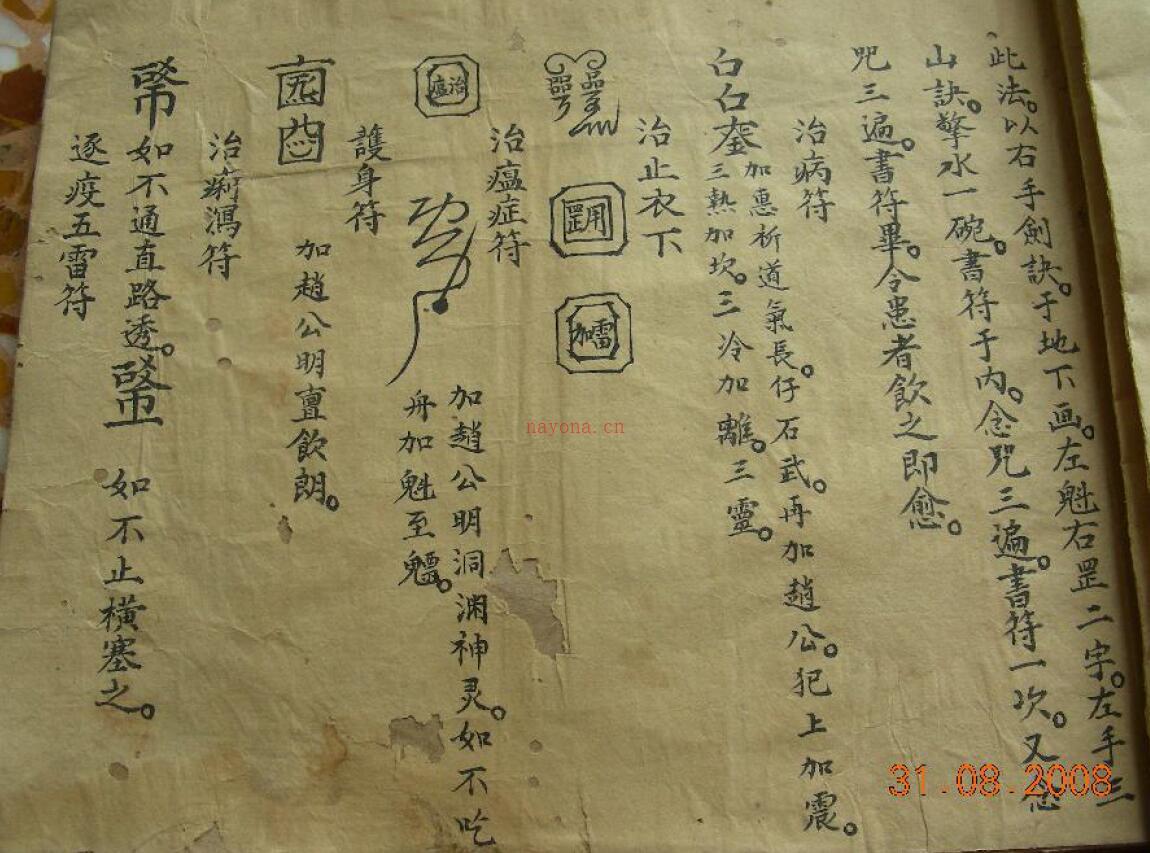 此法。以右手劍訣。于地下画。左魁右罡二字。左手三
山訣。擎水一碗。書符于內。念咒三遍。書符一次。又念
咒三遍。書符畢。令患者飲之即愈。
治病符
加惠祈道氣長。仔石武。再加趙公。犯上加震。
三熱加坎。三冷加離。三靈。
治止衣下
用罡
雷加
治瘟症符
治瘟
加趙公明洞渊神灵。如不吃
舟加魁至
護身符
加趙公明亶飲朗。
治痢瀉符
如不通直路透。
如不止橫塞之。
逐疫五雷符
nayona.cn
31.08.2008